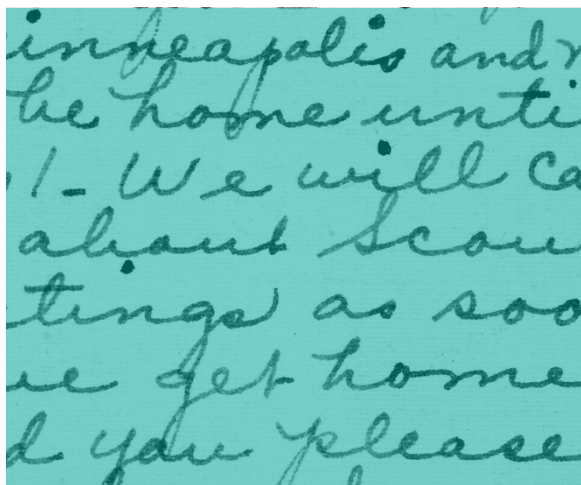 inneapolis and
be home unti
1- We will ca
about Scou
tings as soo
we get home
d you please